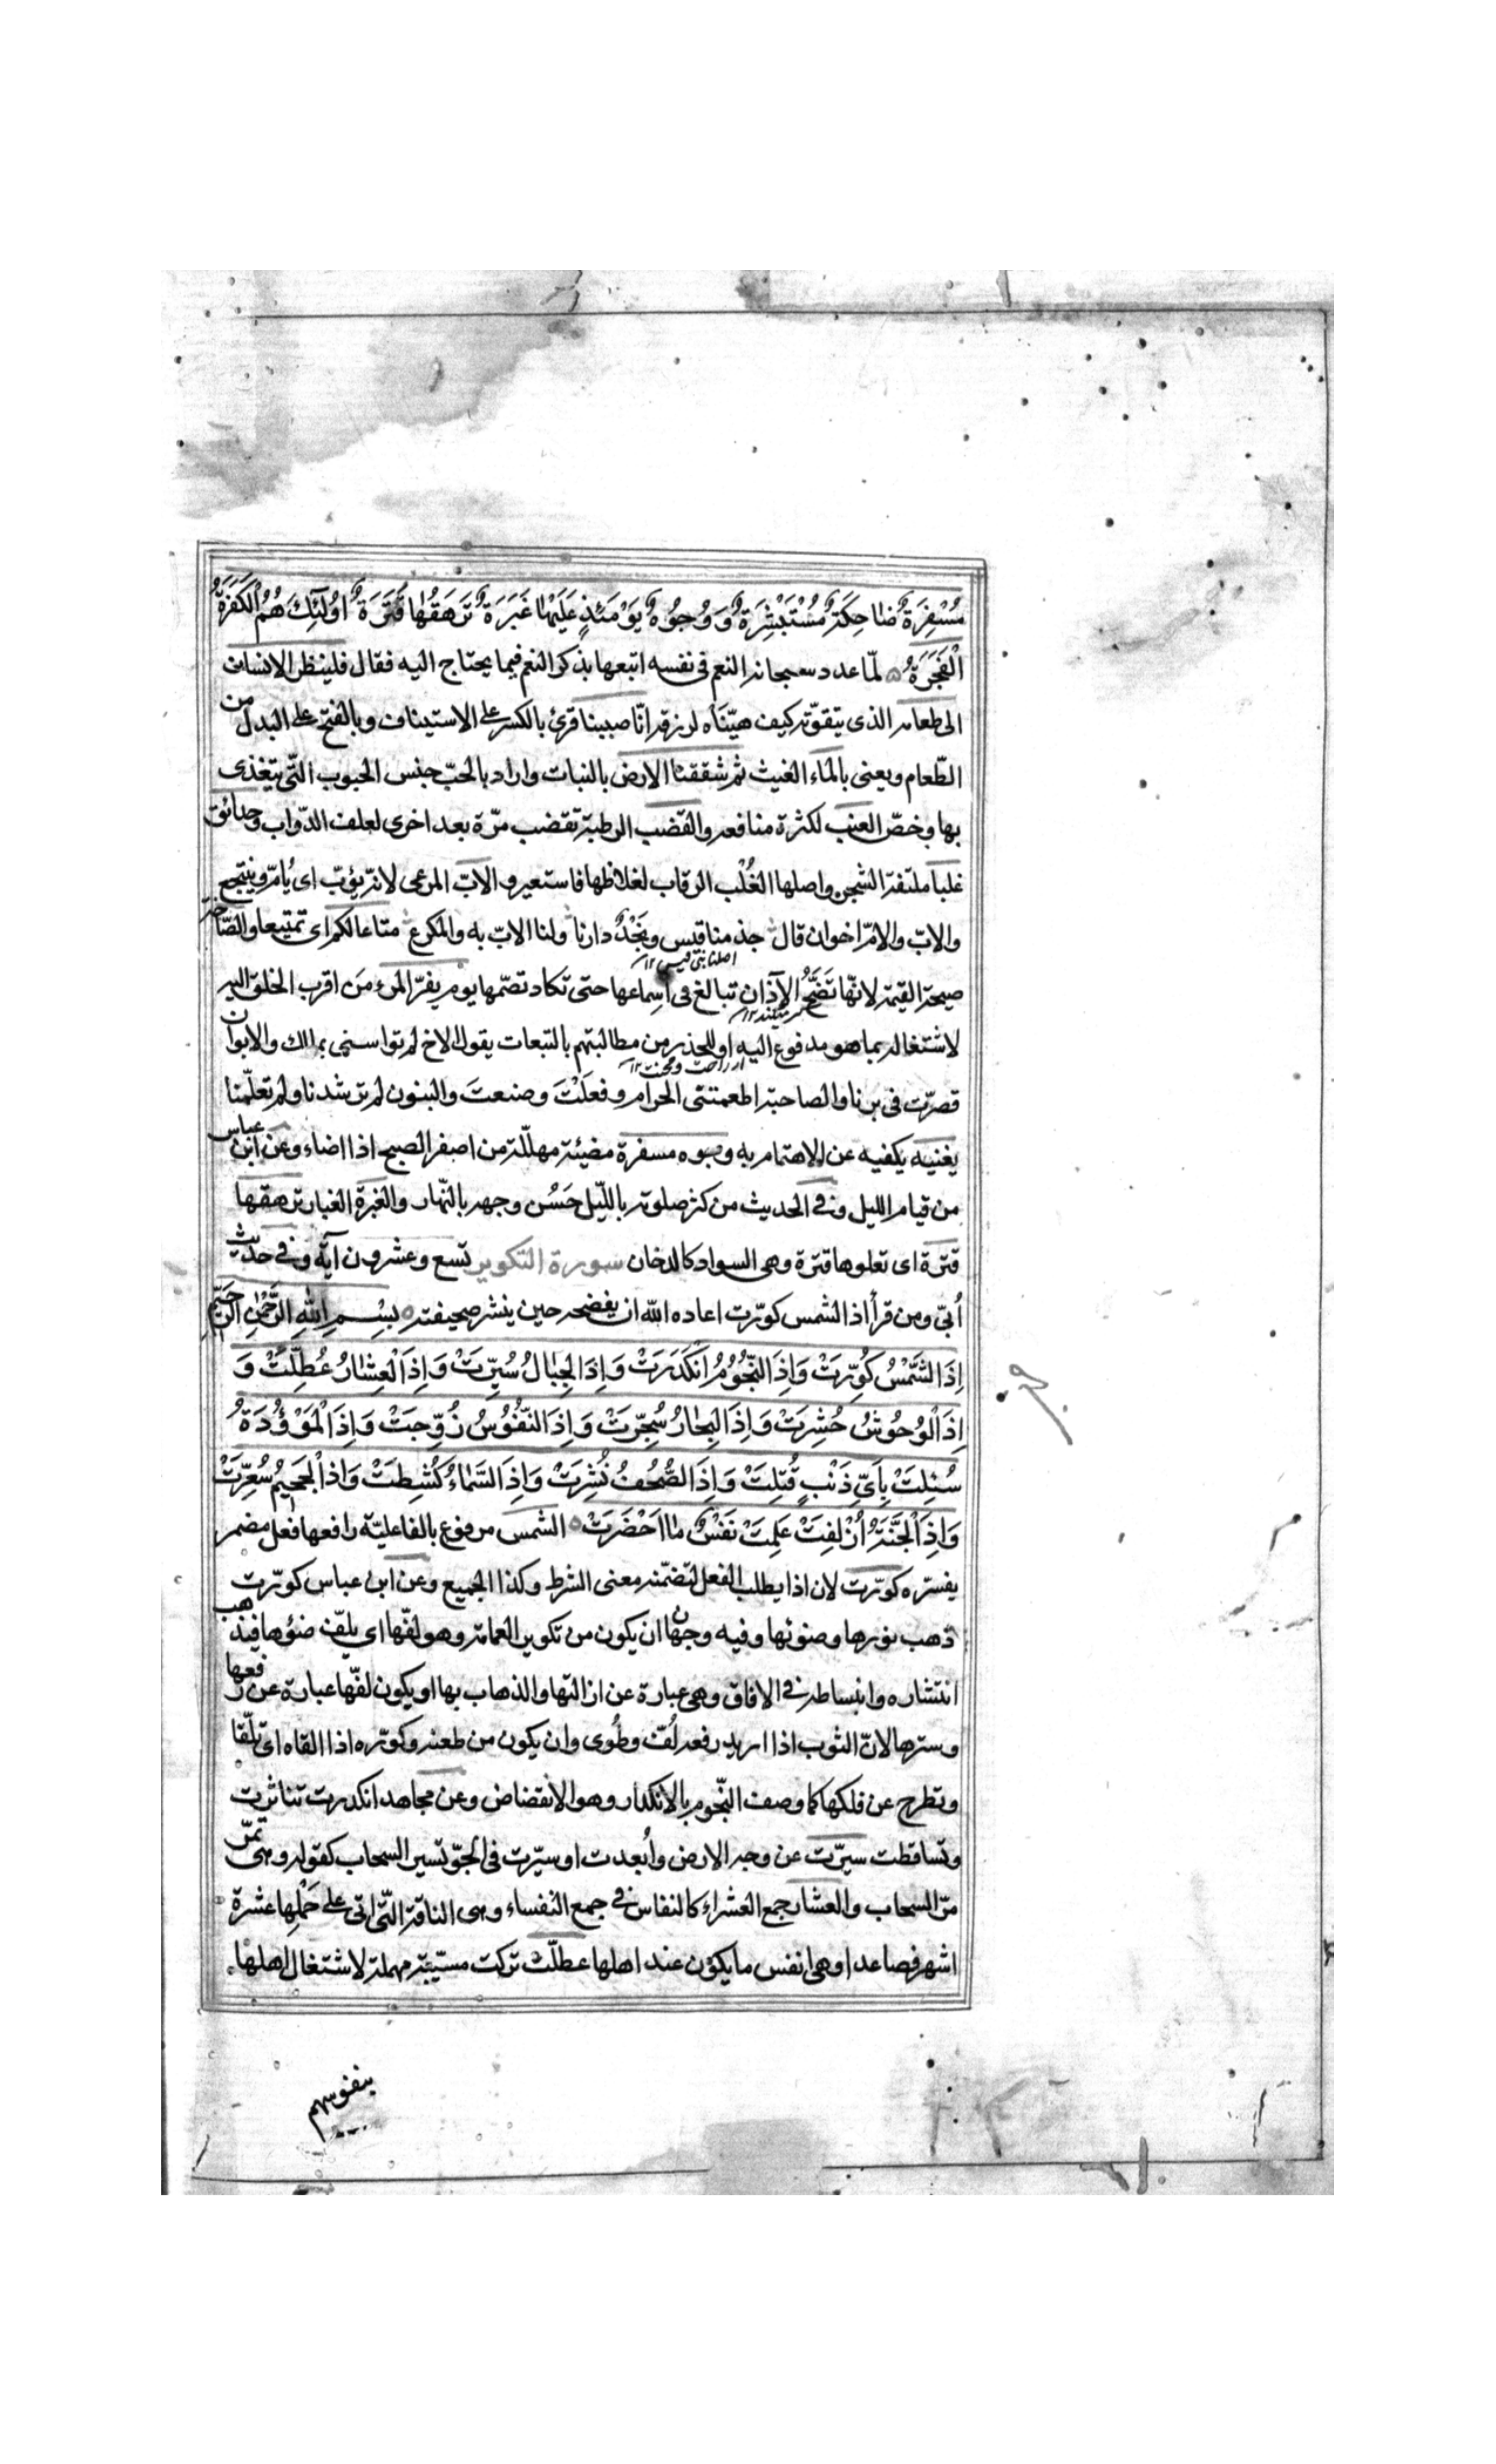 مُسْفِرَةٌ ضاحِكَةٌ مُسْتَبْشِرَةٌ وَوُجُوُهٌ يَوْمَئذٍ عَلَيْها غَبَرَةٌ تَرهَقُها قَتَرَةٌ اوُلئِكَ هُمُ الْكَفَرَةُ
الْفَجَرَةُ لمّا عدد سبحانه النعم فى نفسه اتبعها بذكر النعم فيما يحتاج اليه فقال فلينظر الانسان
الى طعامه الذى يتقوّته كيف هيّئناه لرزقه انّا صببنا قرئ بالكسر على الاستيناف وبالفتح على البدل من
الطّعام ويعنى بالماء الغيث ثم شققنا الارض بالنبات واراد بالحبّ جنس الحبوب التّى يتغذى
بها وخصّ العنب لكثرة منافعه والقضب الرطبة تقضب مرّة بعد اخرى لعلف الدّواب وحدائق
غلبا ملتفة الشجر واصلها الغُلْب الرقاب لغلاظها فاستعير والابّ المرعى لانّه يؤبّ اى يُامّ وينتجع
والابّ والامّ اخوان قال جذمنا قيس ونَجْدٌ دارنا ولنا الابّ به والمكرع متاعا لكم اى تمتيعا والصّاخّة
اصلنا بنى قيس ١٢
صيحة القيمة لانّها تَصَخُّ الآذان تبالغ فى اسماعها حتى تكاد تصمّها يوم يفرّ المرء من اقرب الخلق اليه
لاشتغاله بما هو مدفوع اليه او للحذر من مطالبتهم بالتبعات يقول الاخ لم تواسنى بمالك والابوان
قصرّت فى برنا والصاحبة اطعمتنى الحرام وفعلْتَ وصنعتَ والبنون لم ترشدنا ولم تعلّمنا
يغنيه يكفيه عن الاهتمام به وجوه مسفرة مضيئة مهلّلة من اصفر الصبح اذا اضاء وعن ابن عباس
من قيام الليل وفى الحديث من كثر صلوته باللّيل حَسُن وجهه بالنّهار والغبَرة الغبار ترهقها
قترة اى تعلوها قترة وهى السواد كالدخان سورة التكوير تسع وعشرون آية وفى حديث
أُبىّ ومن قرأ اذا الشمس كورّت اعاده الله ان يفضحه حين ينشر صحيفته بِسْمِ اللهِ الرَّحْمنِ الرَّحيَّمِ
اِذَا الشَّمْسُ كُوّرَتْ وَاِذَ النّجُوُمُ انْكَدَرَتْ وَاِذَ الجِبٰالُ سُيّرَتْ وَاِذَ الْعِشٰارُ عُطِّلَتْ وَ
اِذَ الْوُحُوشُ حُشِرَتْ وَاِذَ الْبِحارُ سُجّرَتْ وَاِذَ النّفُوُسُ زُوّجَتْ وَاِذَ الْمَوْؤُدَةُ
سُئِلَتْ بِاَىِّ ذَنْبٍ قُتِلَتْ وَاِذَا الصُّحُفُ نُشِرَتْ وَاِذَ السَّماءُ كُشِطَتْ وَاذ الْجَحيمُ سُعِّرَتْ
وَاِذَ الْجَنَّةُ اُزْلِفَتْ عَلِمَتْ نَفْسٌ ما اَحْضَرَتْ الشمس مرفوع بالفاعليّة رافعها فعل مضمر
يفسّره كورّت لان اذا يطلب الفعل لتضمّنه معنى الشرط وكذا الجميع وعن ابن عباس كورّت
ذهب بنورها وضوئها وفيه وجهان ان يكون من تكوير العمامة وهو لفّها اى يلفّ ضوؤها فيذهب
انتشاره وانبساطه فى الافاق وهى عبارة عن ازالتها والذهاب بها او يكون لفّها عبارة عن رفعها
وسترها لانّ الثوب اذا اريد رفعه لُفّ وطُوى وان يكون من طعنه وكوّره اذا القاه اى تلقا
وتطرح عن فلكها كما وصف النّجوم بالانكدار وهو الانقضاض وعن مجاهد انكدرت تناثرت
وتساقطت سيرّت عن وجه الارض وأبعدت او سيّرت فى الجوّ تسير السحاب كقوله وهى تمرّ
مرّ السحاب والعشار جمع العشراء كالنفاس فى جمع النفساء وهى الناقة التّى اتى على حَمْلِها عشرة
اشهر فصاعدا وهى انفس ما يكون عند اهلها عطلّت تركت مسيّبة مهملة لاشتغال اهلها
بنفوسهم